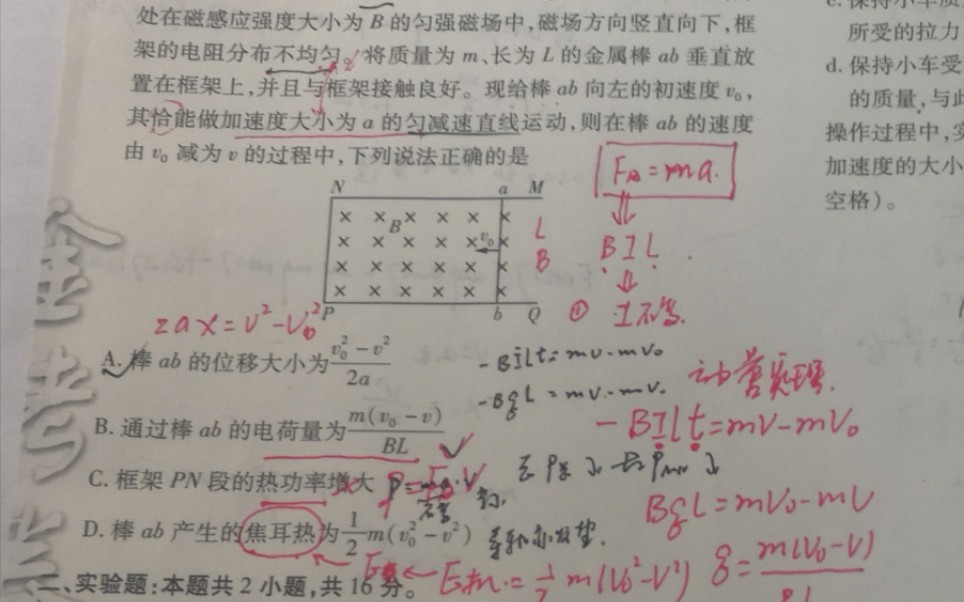 处在磁感应强度大小为 B 的匀强磁场中,磁场方向竖直向下,框
架的电阻分布不均匀。将质量为 m、长为 L 的金属棒 ab 垂直放
置在框架上,并且与框架接触良好。现给棒 ab 向左的初速度 v₀,
其恰能做加速度大小为 a 的匀减速直线运动,则在棒 ab 的速度
由 v₀ 减为 v 的过程中,下列说法正确的是
F安=ma.
N a M
B
v₀
L
B
BIL.
P b Q
① I不变.
2ax=v²-v₀²
A. 棒 ab 的位移大小为 (v₀²-v²)/2a
-BILt=mv-mv₀
-BqL=mv-mv₀
动量定理.
-BILt=mV-mV₀
B. 通过棒 ab 的电荷量为 m(v₀-v)/BL
C. 框架 PN 段的热功率增大
BqL=mV₀-mV
D. 棒 ab 产生的焦耳热为 1/2 m(v₀²-v²)
q=m(V₀-V)/BL
二、实验题:本题共 2 小题,共 16 分。
E机.=1/2 m(V₀²-V²)
所受的拉力
d. 保持小车受
的质量,与此
操作过程中,实
加速度的大小
空格)。